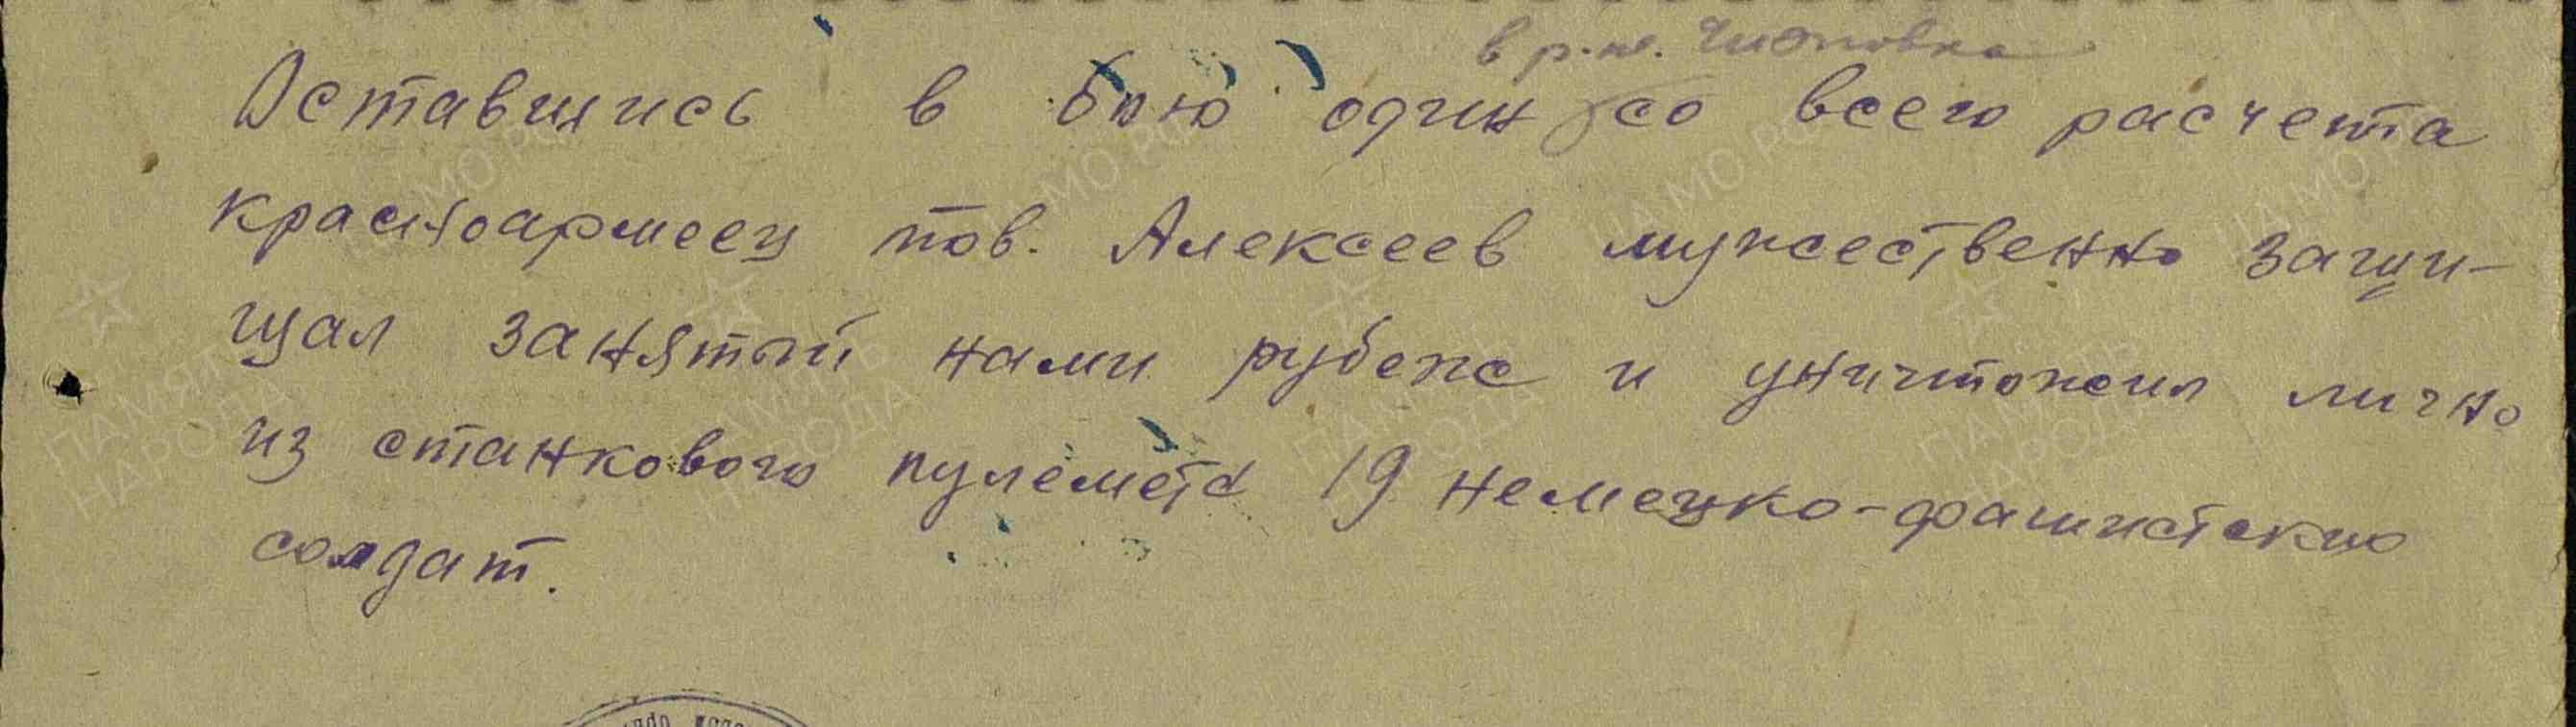 в р-не
Оставшись в бою один со всего расчета
красноармеец тов. Алексеев мужественно защи-
щал занятый нами рубеж и уничтожил лично
из станкового пулемета 19 немецко-фашистских
солдат.
ПАМЯТЬ
НАРОДА
ЦАМО РФ